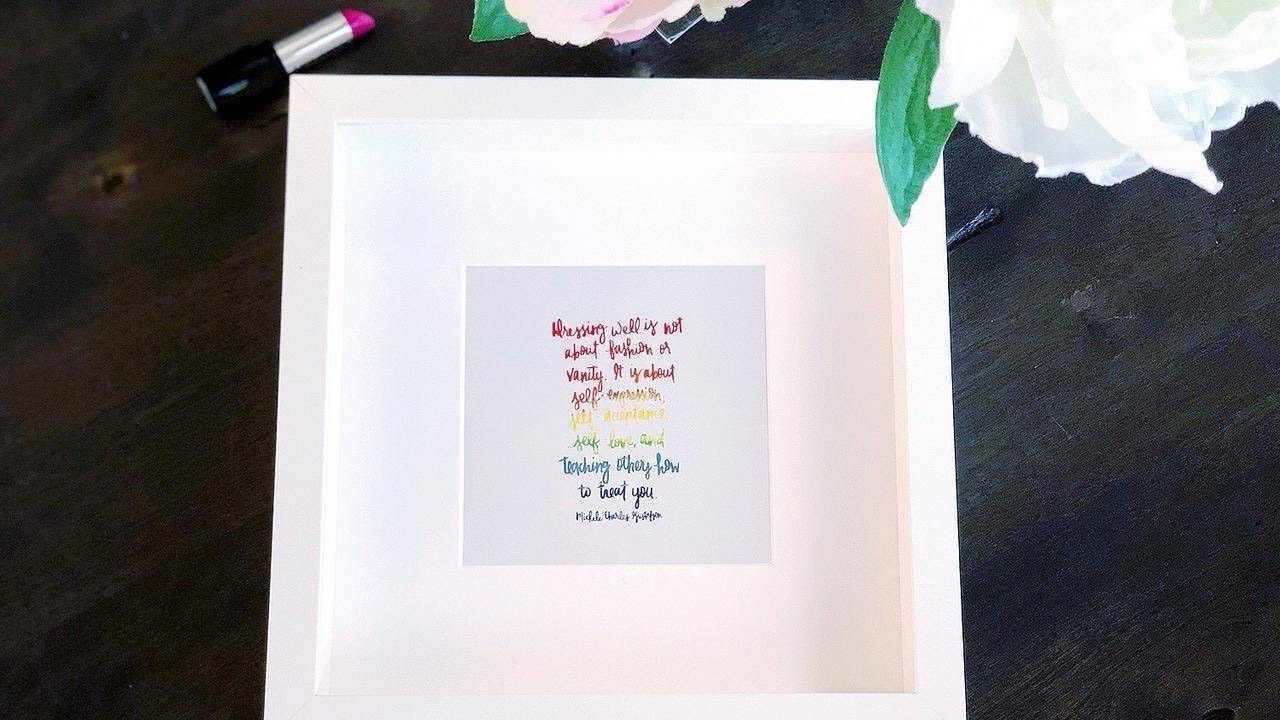 Dressing well is not
about fashion or
vanity. It is about
self-expression,
self-acceptance,
self-love, and
teaching others how
to treat you.
Michele Charles Gustafson